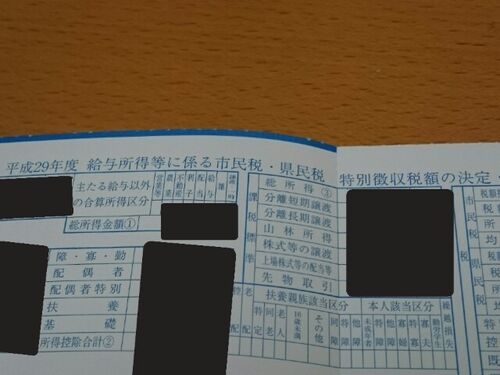 平成29年度 給与所得等に係る市民税・県民税 特別徴収税額の決定・
主たる給与以外
の合算所得区分
営業等
農業
不動産
利子
配当
給与
総所得金額①
課税標準
総所得③
分離短期譲渡
分離長期譲渡
山林所得
株式等の譲渡
上場株式等の配当等
先物取引
市民税
県民税
税額
均
税額
均
特
控
既
障・寡・勤
配偶者
配偶者特別
扶養
基礎
所得控除合計②
扶養親族該当区分
本人該当区分
控配
老配
特定
同老
老人
16歳未満
その他
同障
特障
他障
未成年者
特障
他障
寡婦
特寡
寡夫
勤労学生
繰越損失